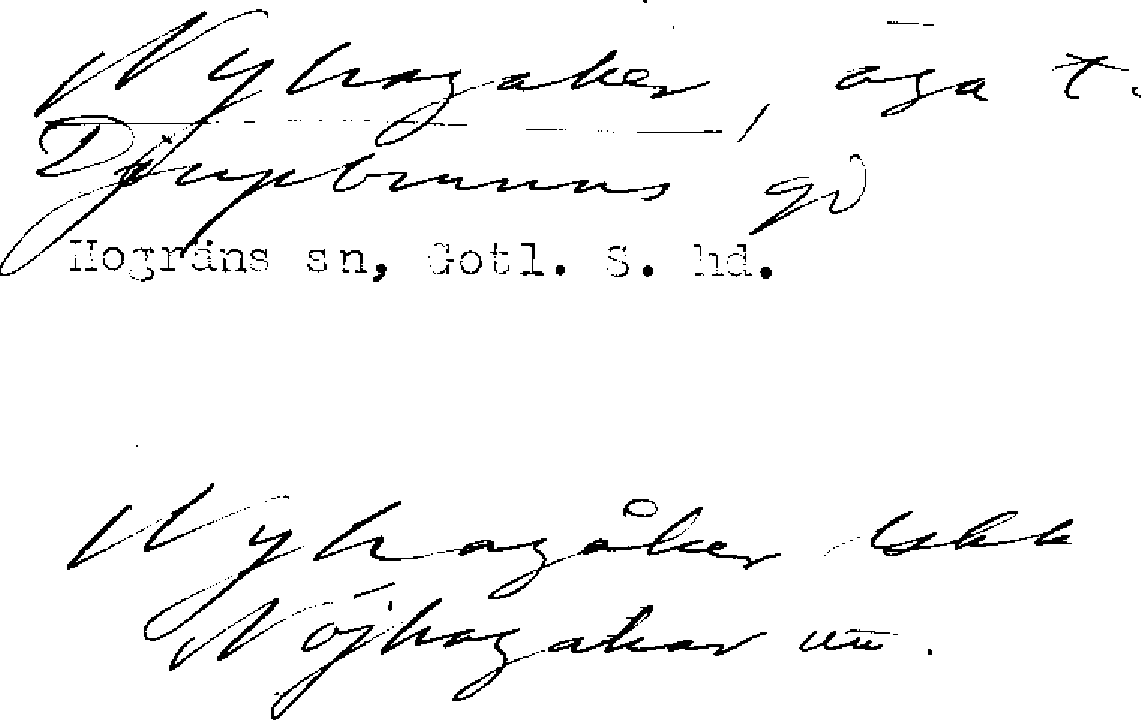 Nyhagaker, äga t.
Djupbrunns gd
Hogräns sn, Gotl. S. hd.
Nyhagåker
Nöjhagakar uu.